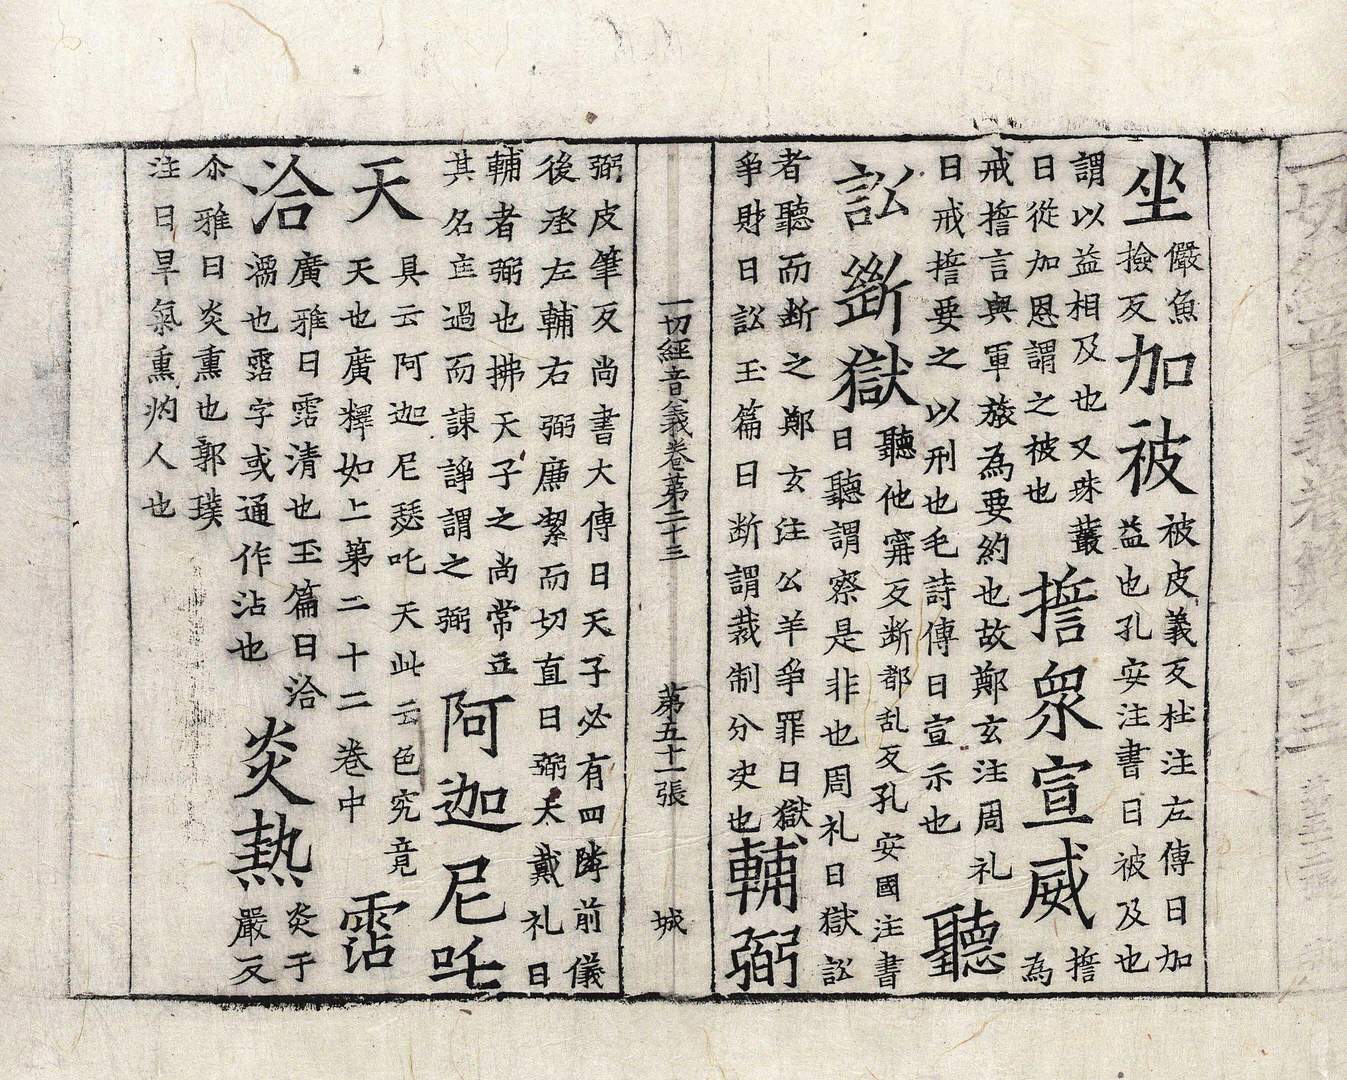 坐
儼魚
撿反
加被
被皮義反杜注左傳曰加
益也孔安注書曰被及也
謂以益相及也又珠叢
曰從加恩謂之被也
誓眾宣威
誓
為
戒誓言與軍旅為要約也故鄭玄注周礼
曰戒誓要之以刑也毛詩傳曰宣示也
聽
訟斷獄
聽他寗反断都乱反孔安國注書
曰聽謂察是非也周礼曰獄訟
者聽而断之鄭玄注公羊爭罪曰獄
爭財曰訟玉篇曰断謂裁制分决也
輔弼
一切經音義卷第二十三 第五十一張 城
弼皮筆反尚書大傳曰天子必有四隣前儀
後丞左輔右弼廉潔而切直曰弼大戴礼曰
輔者弼也拂天子之尚常立
其名過而諫諍謂之弼
阿迦尼吒
天
具云阿迦尼瑟吒天此云色究竟
天也廣釋如上第二十二卷中
霑
洽
廣雅曰霑清也玉篇曰洽
濡也霑字或通作沾也
炎熱
炎于
嚴反
尒雅曰炎熏也郭璞
注曰旱氣熏灼人也